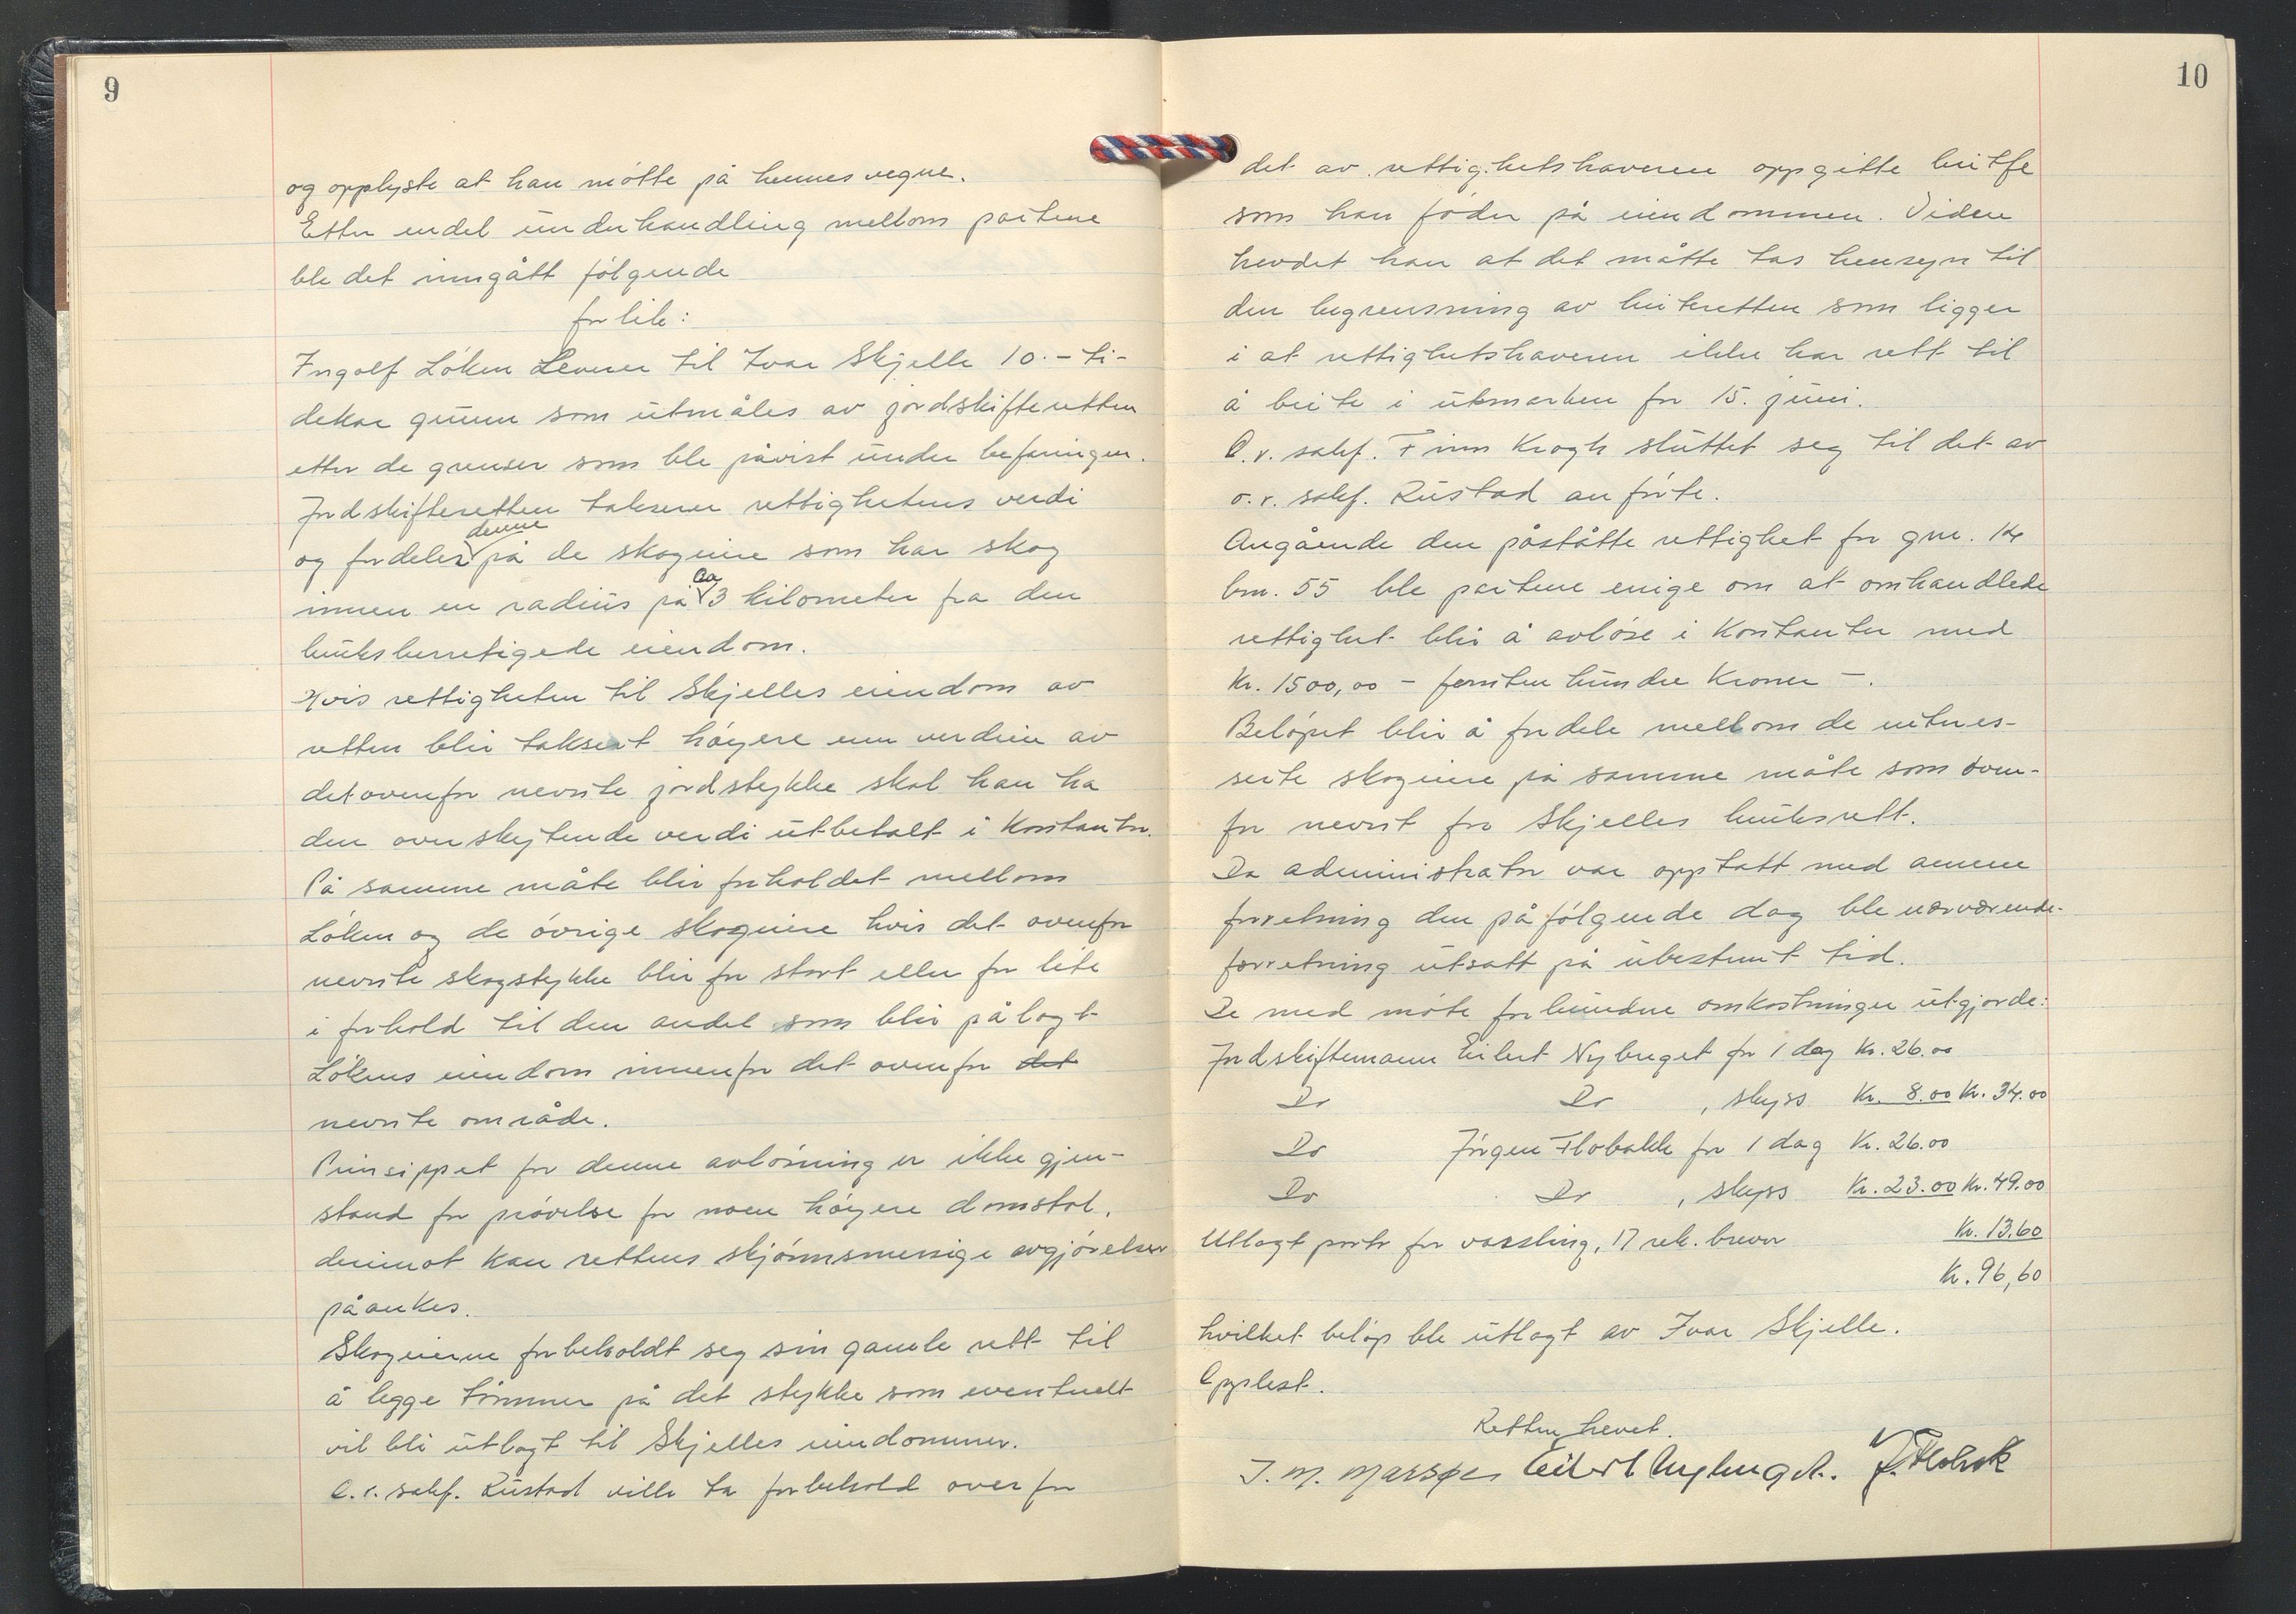 9
og opplyste at han møtte på hennes vegne.
Etter endel underhandling mellom partene
ble det inngått følgende
forlik:
Ingolf Løken Leverer til Ivar Skjelle 10.- ti-
dekar grunn som utmåles av jordskifteretten
etter de grenser som ble påvist under befaringen.
Jordskifteretten takserer rettighetens verdi
og fordeler denne på de skogeiere som har skog
innen en radius på ca 3 kilometer fra den
bruksberretigede eiendom.
Hvis rettigheten til Skjelles eiendom av
retten blir taksert høyere enn verdien av
det ovenfor nevnte jordstykke skal han ha
den overskytende verdi utbetalt i kontanter.
På samme måte blir forholdet mellom
Løken og de øvrige skogeiere hvis det ovenfor
nevnte skogstykke blir for stort eller for lite
i forhold til den andel som blir pålagt
Løkens eiendom innenfor det ovenfor det
nevnte område.
Prinsippet for denne avløsning er ikke gjen-
stand for prøvelse for noen høyere domstol,
derimot kan rettens skjønnsmessige avgjørelser
påankes.
Skogeierne forbeholdt seg sin gamle rett til
å legge tømmer på det stykke som eventuelt
vil bli utlagt til Skjelles eiendommer.
O.r. sakf. Rustad ville ta forbehold overfor
10
det av rettighetshaveren oppgitte beitfe
som han føder på eiendommen. Videre
hevdet han at det måtte tas hensyn til
den begrensning av beiteretten som ligger
i at rettighetshaveren ikke har rett til
å beite i utmarken før 15. juni.
O.r. sakf. Finn Krogh sluttet seg til det av
o.r. sakf. Rustad anførte.
Angående den påståtte rettighet for gnr. 14
bnr. 55 ble partene enige om at omhandlede
rettighet blir å avløse i kontanter med
Kr. 1500,00 - femten hundre kroner -.
Beløpet blir å fordele mellom de interes-
serte skogeiere på samme måte som oven-
for nevnt for Skjelles bruksrett.
Da administrator var opptatt med annen
forretning den påfølgende dag ble nærværende
forretning utsatt på ubestemt tid.
De med møte forbundne omkostninger utgjorde:
Jordskiftemann Eilert Nybruget for 1 dag Kr. 26.00
Do Do , skyss Kr. 8.00 Kr. 34.00
Do Jørgen Flobakk for 1 dag Kr. 26.00
Do Do , skyss Kr. 23.00 Kr. 49.00
Utlagt porto for varsling, 17 rek. brever Kr. 13.60
Kr. 96,60
hvilket beløp ble utlagt av Ivar Skjelle.
Opplest.
Retten hevet.
J. M. Eilert J.